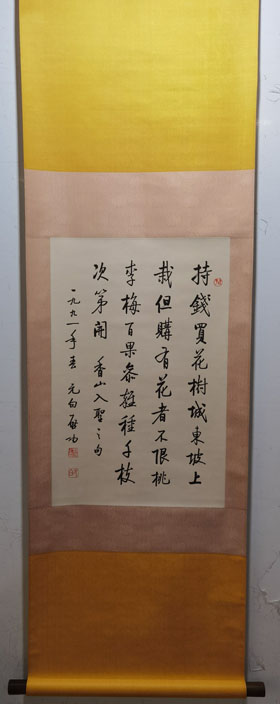 持錢買花樹城東坡上
栽但購有花者不限桃
李梅百果参雜種千枝
次第開 香山入聖之句
一九九一年春 元白啓功